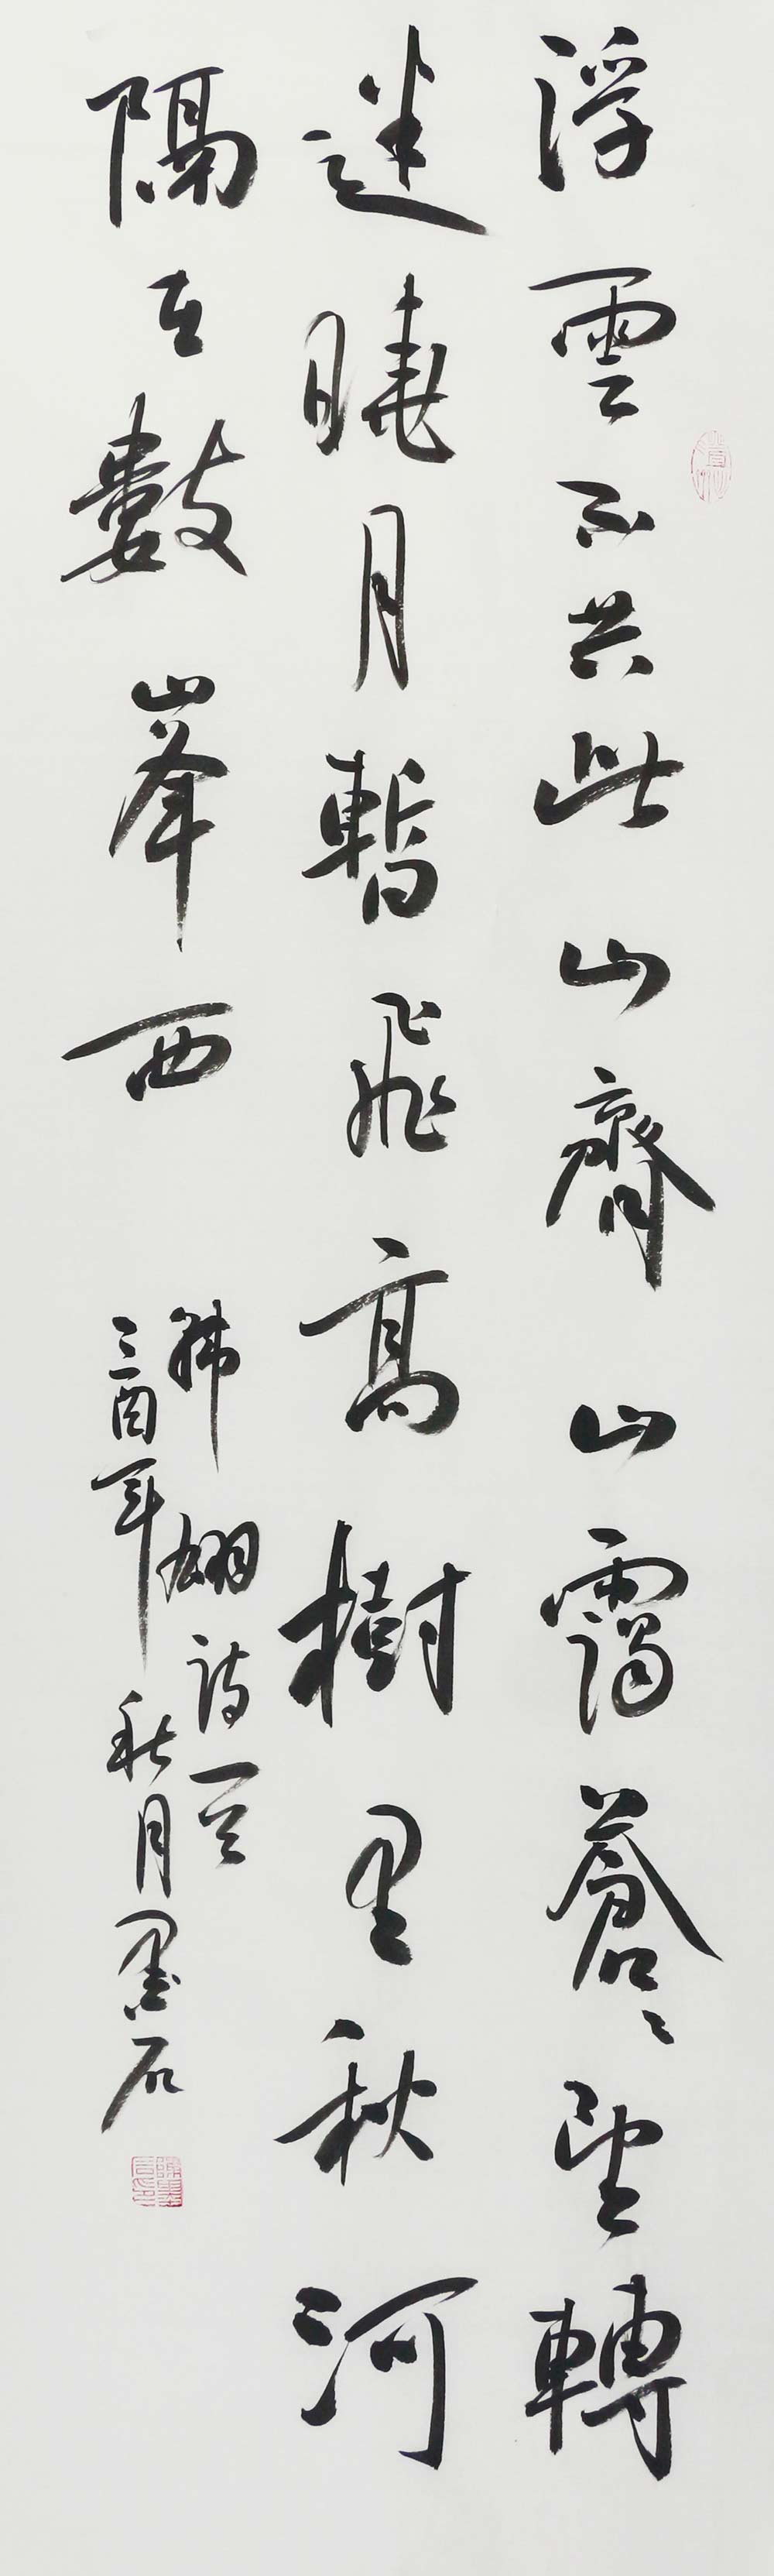 浮雲不共此山齊山靄蒼々望轉
迷曉月暫飛高樹里秋河
隔在數峯西
韓翃詩一首
丁酉年秋月墨石